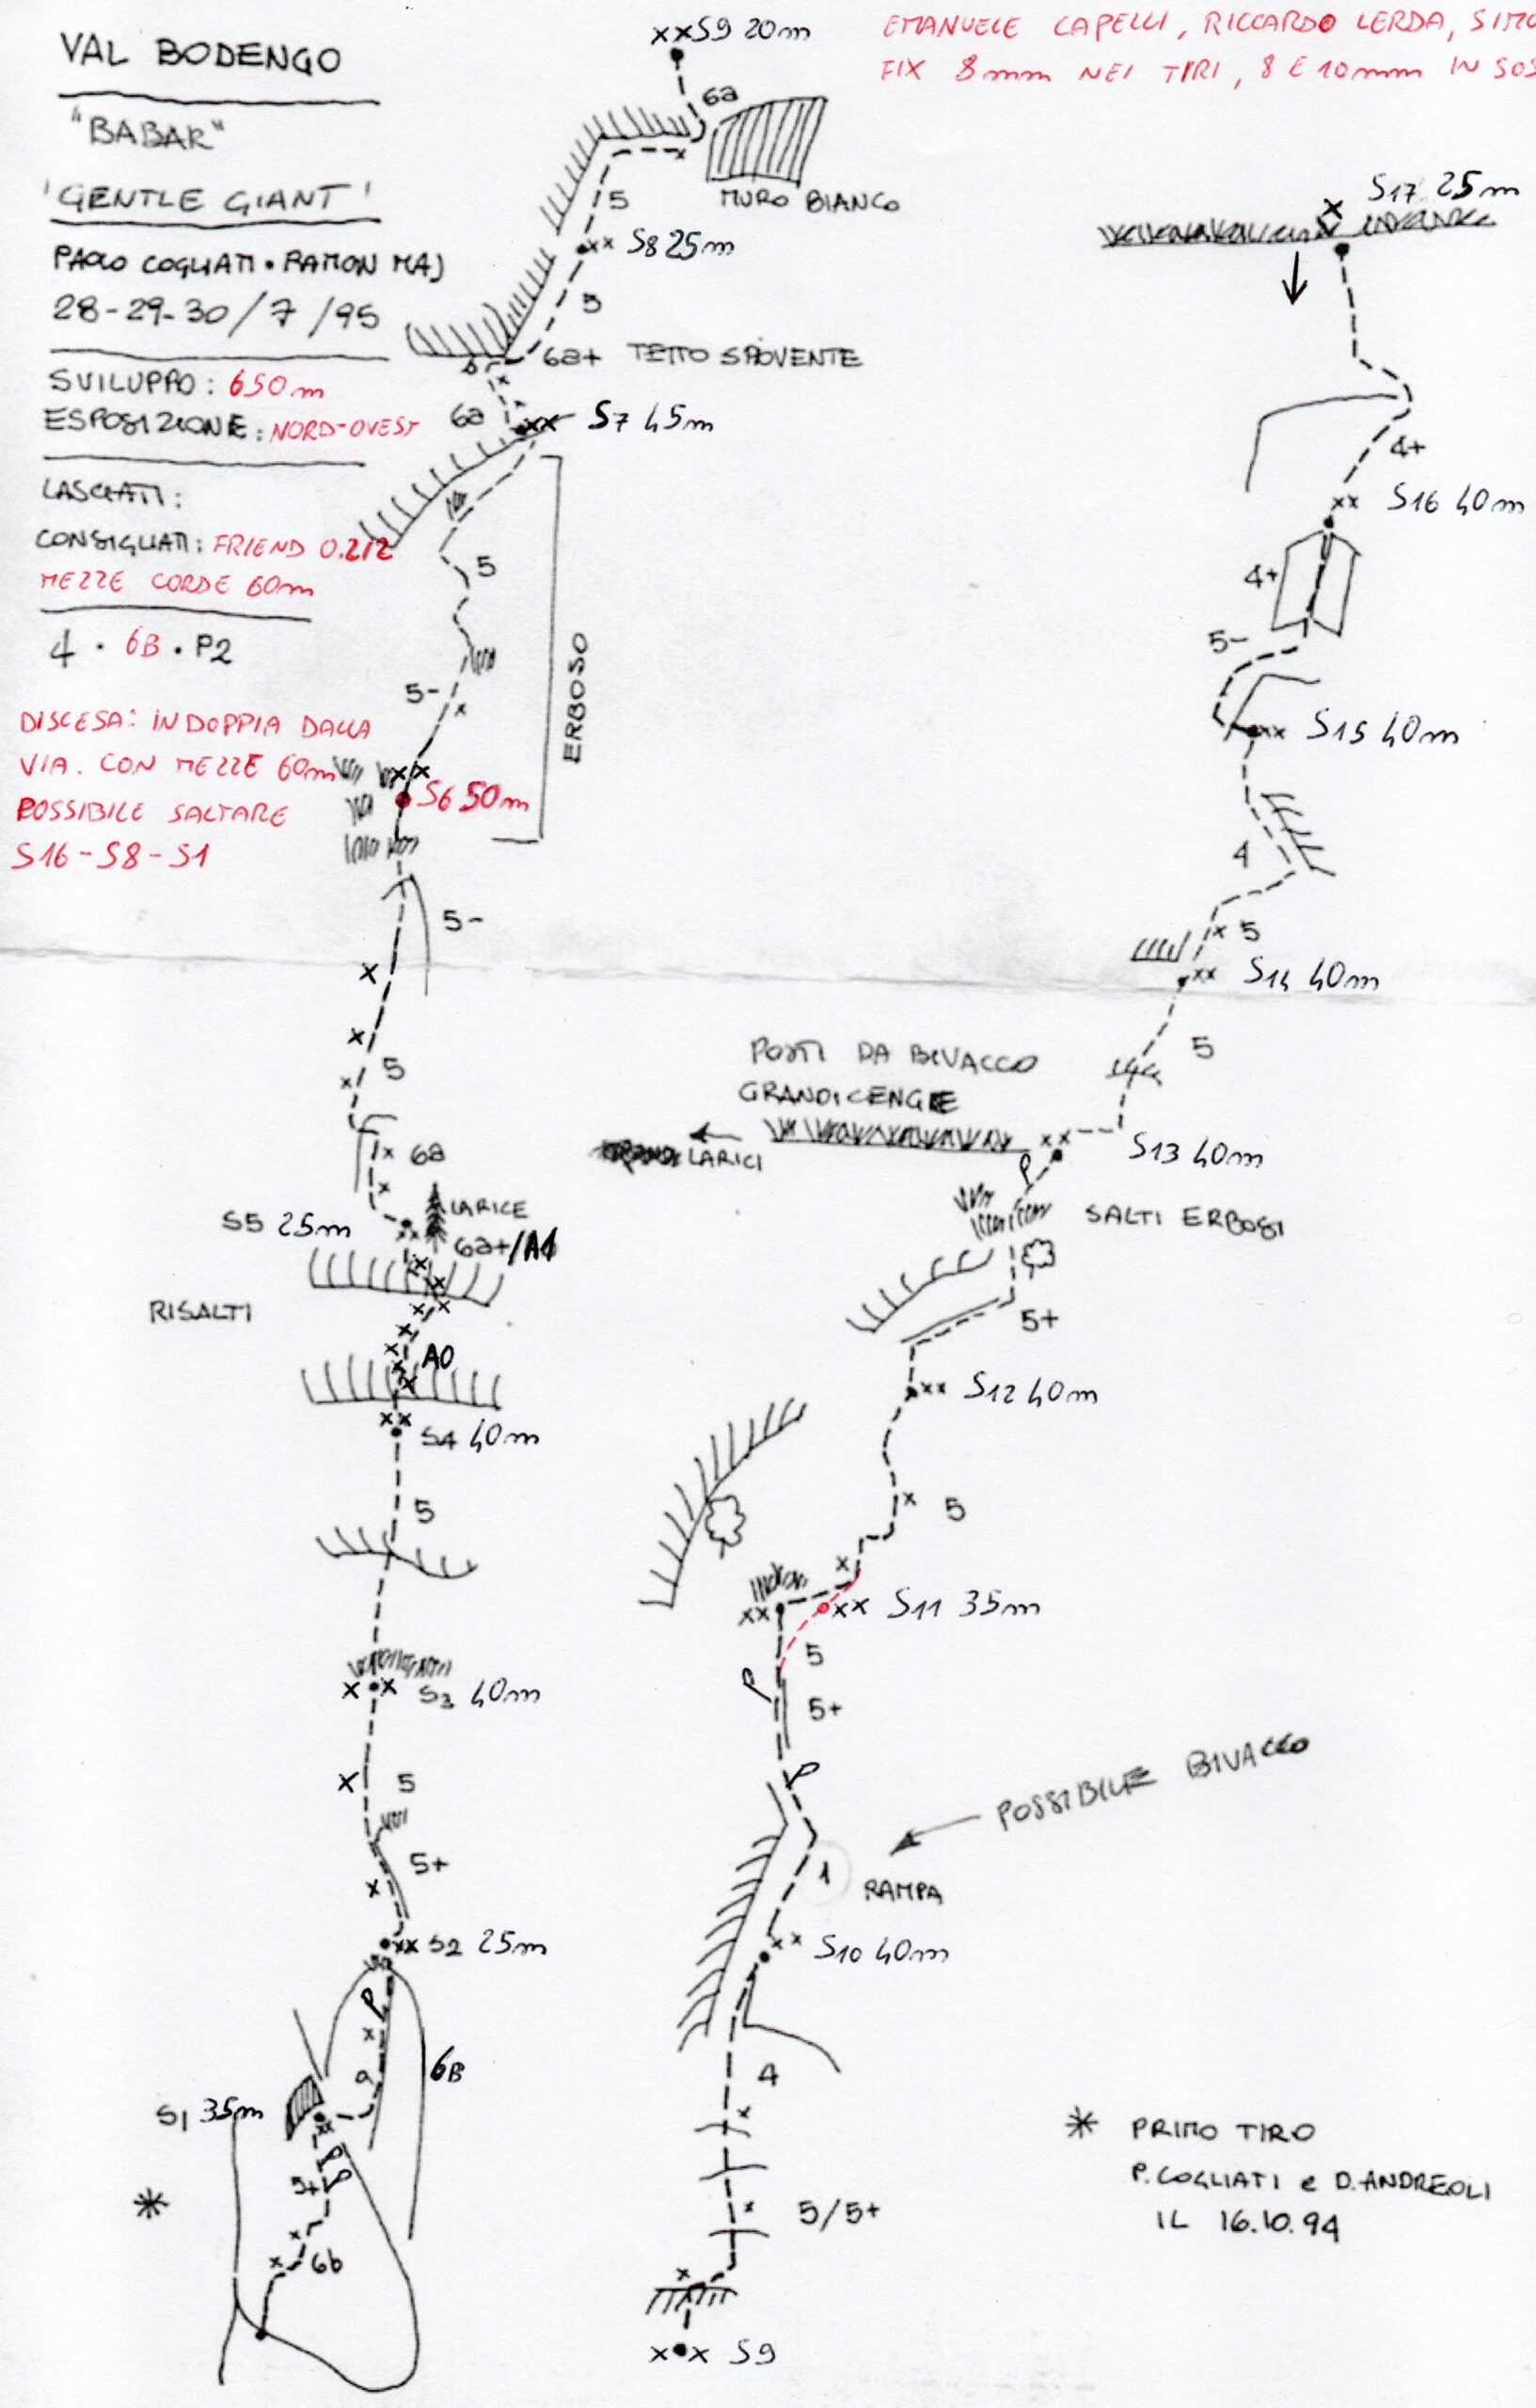 VAL BODENGO
"BABAR"
'GENTLE GIANT'
PAOLO COGLIATI • RAMON MAJ
28-29-30/7/95
SVILUPPO: 650m
ESPOSIZIONE: NORD-OVEST
LASCIATI:
CONSIGLIATI: FRIEND 0.2/2
MEZZE CORDE 60m
4 • 6B • P2
DISCESA: IN DOPPIA DALLA
VIA. CON MEZZE 60m
POSSIBILE SALTARE
S16-S8-S1
EMANUELE CAPELLI, RICCARDO LERDA,
FIX 8mm NEI TIRI, 8 E 10mm IN
xxS9 20m
6a
MURO BIANCO
5
xx S8 25m
5
6a+ TETTO SPIOVENTE
x
6a
xx S7 45m
5
ERBOSO
5-
x
xx
S6 50m
5-
x
x
5
x
x 6a
x
LARICE
S5 25m
xx
6a+/A1
x
x
x x
RISALTI
x
x
A0
x
x
xx
S4 40m
5
x x S3 40m
x 5
5+
x
xx S2 25m
P
x
6B
9
S1 35m
xx
P
P
5+
*
x
x 6b
S17 25m
x
4+
xx S16 40m
4+
5-
xx S15 40m
4
x 5
xx S14 40m
5
POSTI DA BIVACCO
GRANDI CENGIE
LARICI
xx S13 40m
P
SALTI ERBOSI
5+
xx S12 40m
x 5
x
xx
xx S11 35m
5
P
5+
P
POSSIBILE BIVACCO
1
RAMPA
xx S10 40m
4
x
x
5/5+
x
x x S9
* PRIMO TIRO
P. COGLIATI e D. ANDREOLI
IL 16.10.94